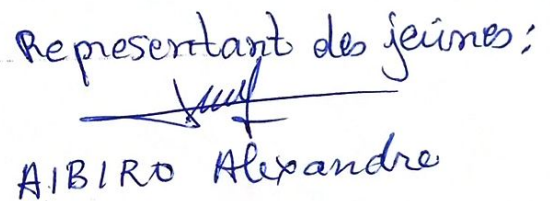 Representant des jeûnes :
AIBIRO Alexandre